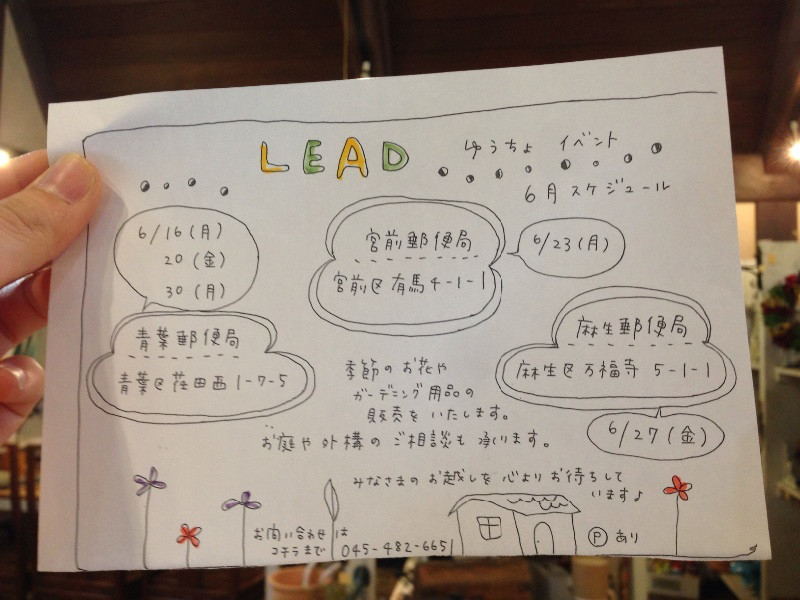 LEAD
ゆうちょ イベント
6月スケジュール
6/16(月)
20(金)
30(月)
青葉郵便局
青葉区荏田西1-7-5
宮前郵便局
宮前区有馬4-1-1
6/23(月)
麻生郵便局
麻生区万福寺 5-1-1
6/27(金)
季節のお花や
ガーデニング用品の
販売をいたします。
お庭や外構のご相談も承ります。
みなさまのお越しを心よりお待ちして
います♪
お問い合わせは
コチラまで 045-482-6651
Ⓟあり